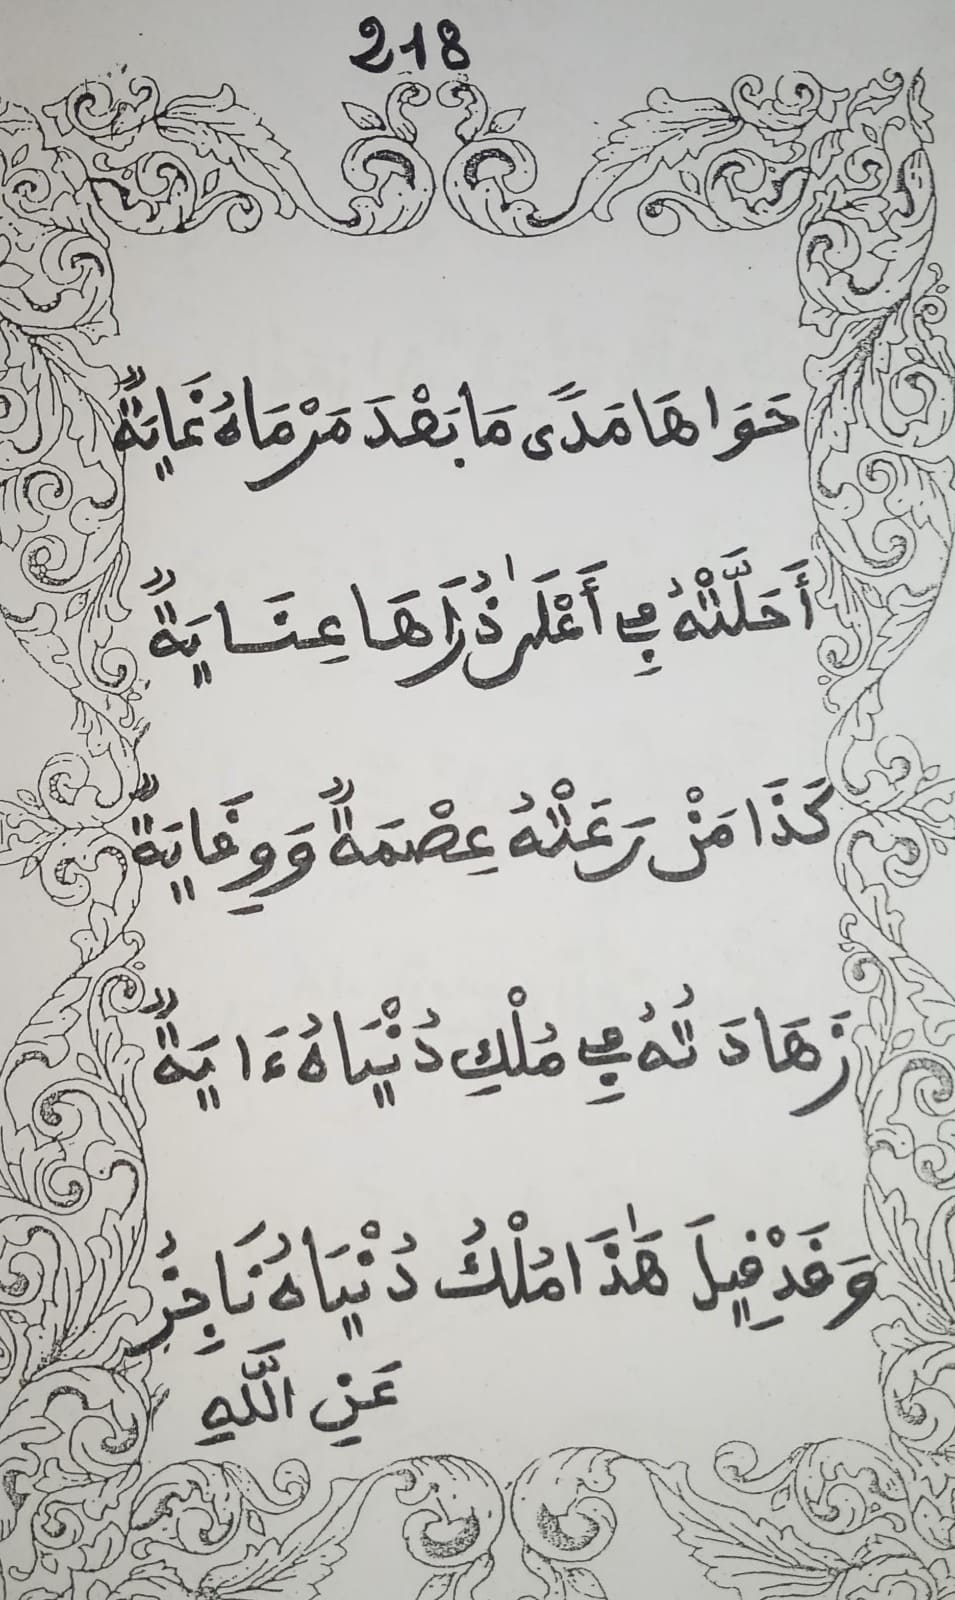 218
حَوَاهَا مَدًى مَا بَعْدَ مَرْمَاهُ غَايَةٌ
أَحَلَّتْهُ فِي أَعْلَىٰ ذُرَاهَا عِنَايَةٌ
كَذَا مَنْ رَعَتْهُ عِصْمَةٌ وَوِقَايَةٌ
زَهَادَتُهُ فِي مُلْكِ دُنْيَاهُ ءَايَةٌ
وَقَدْ قِيلَ هَٰذَا مُلْكُ دُنْيَاهُ نَاجِزُ
عَنِ اللَّهِ